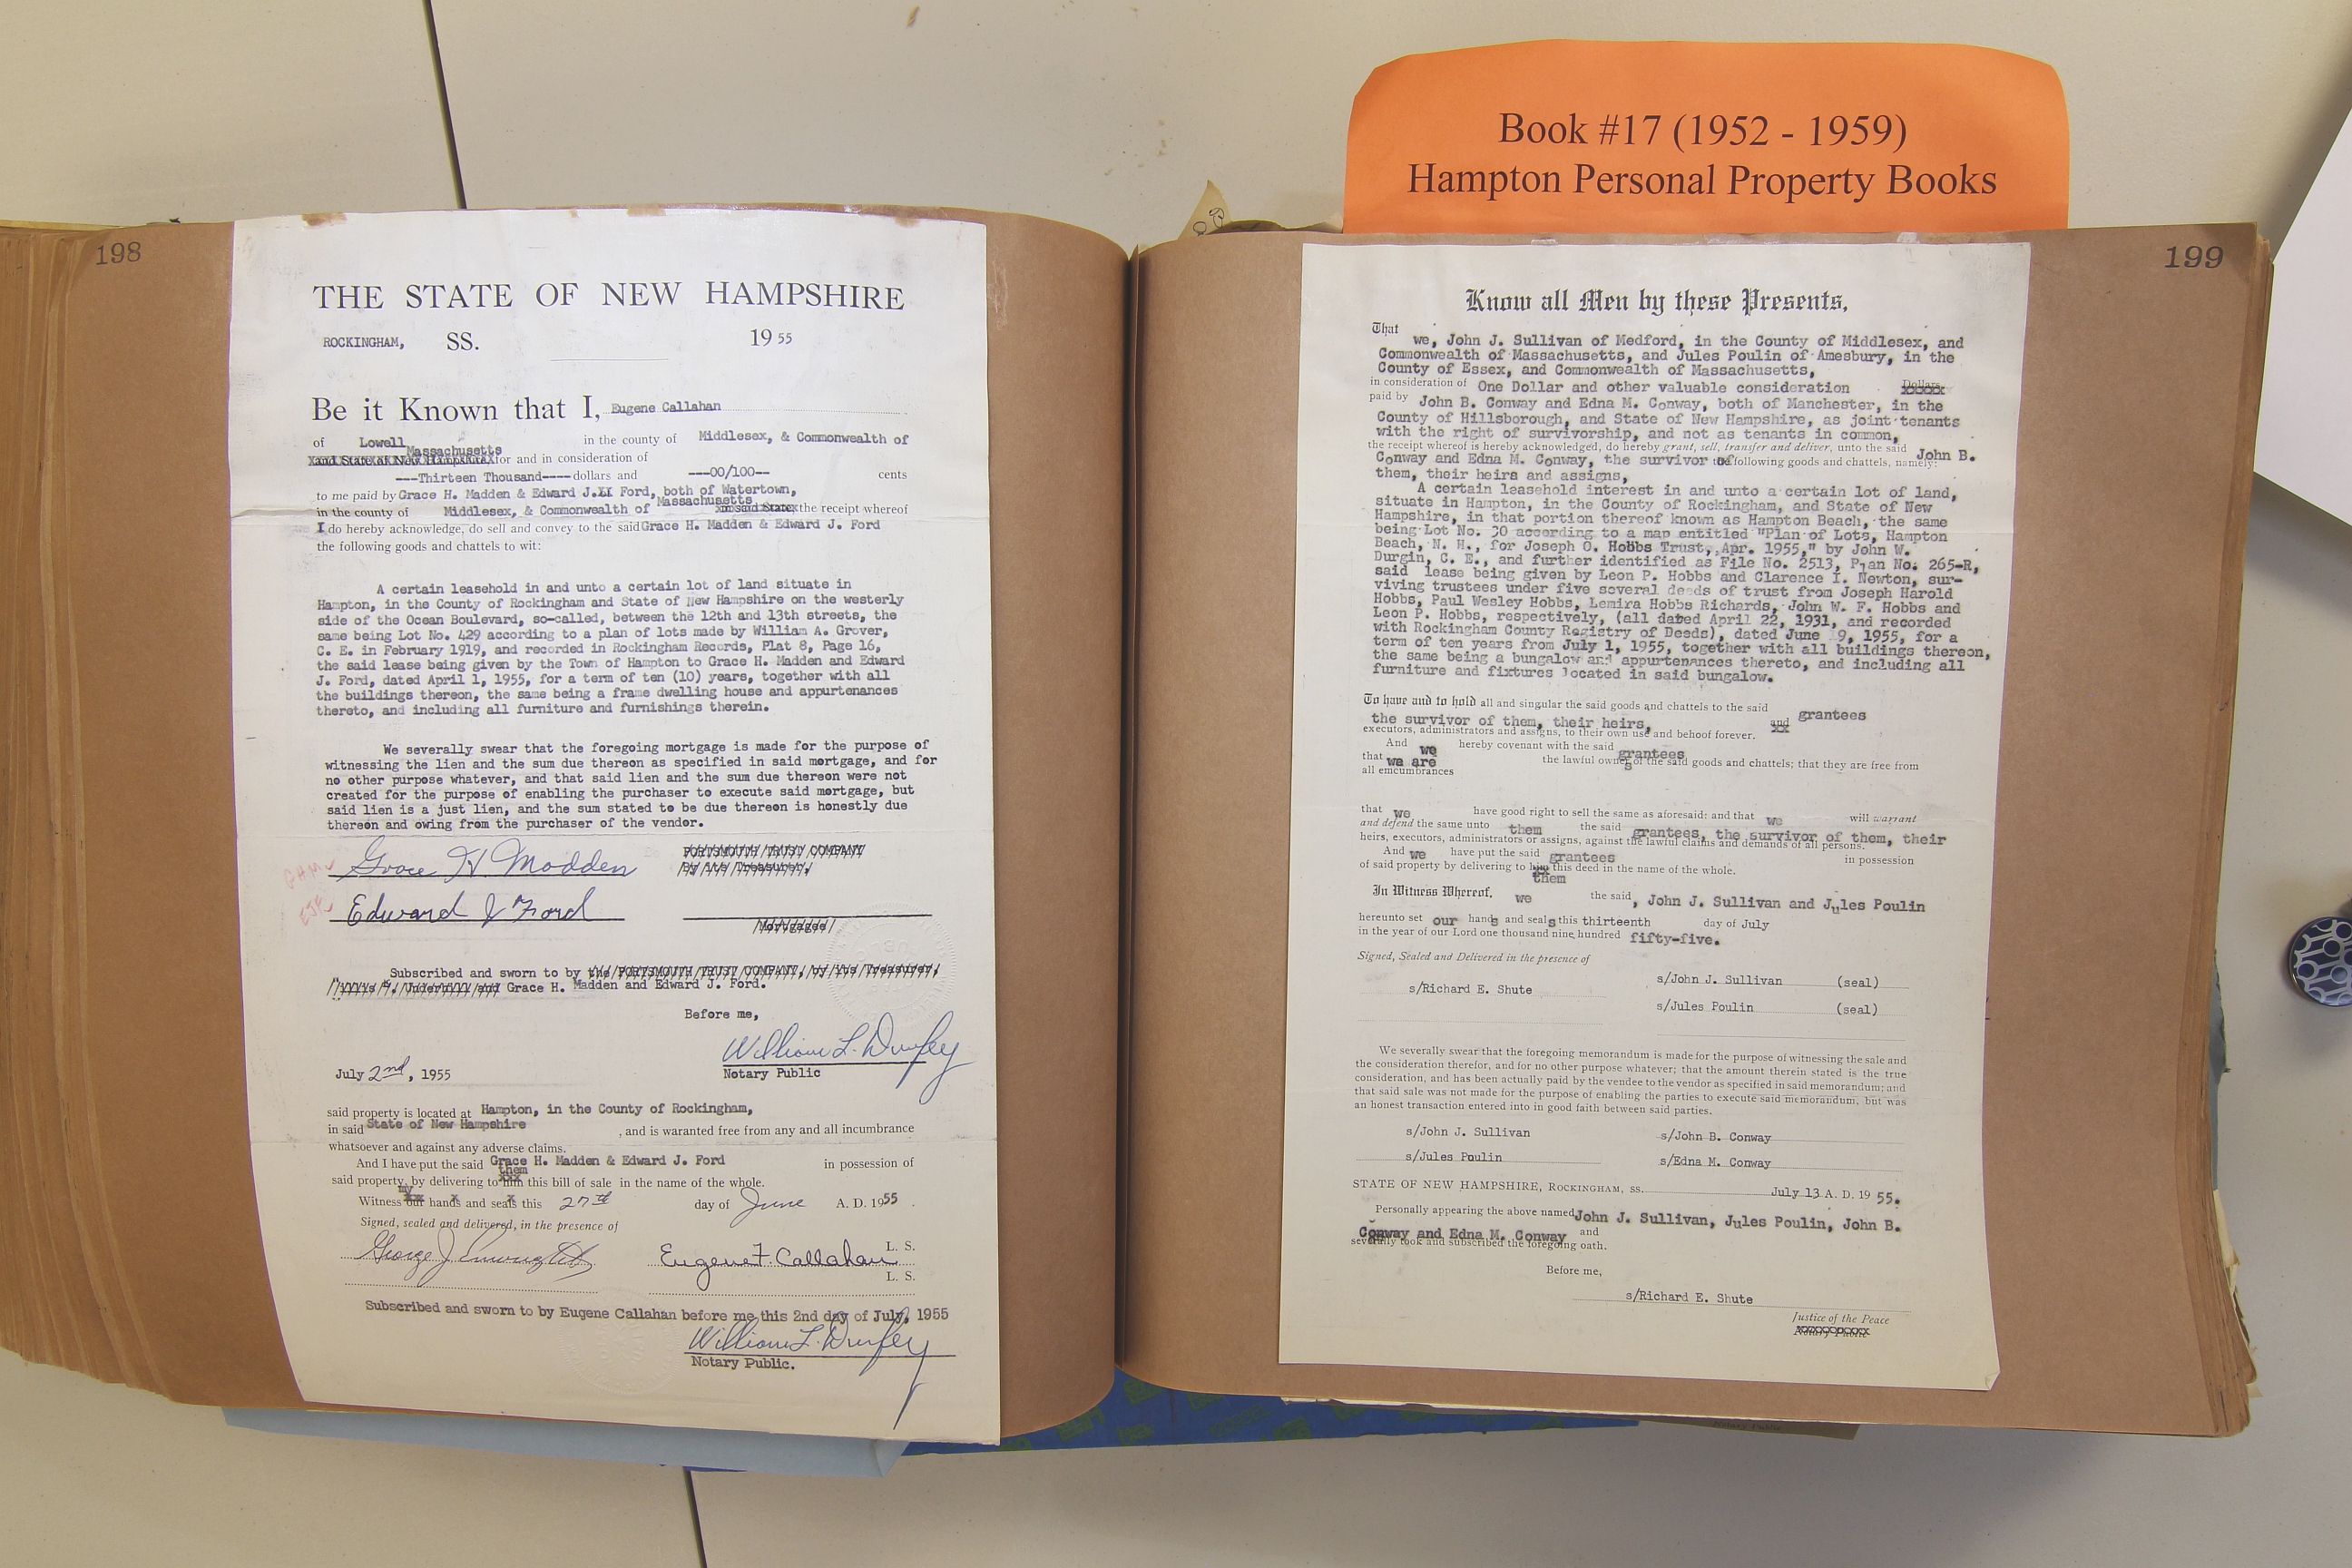 Book #17 (1952 - 1959)
Hampton Personal Property Books
198
THE STATE OF NEW HAMPSHIRE
ROCKINGHAM, SS. 19 55
Be it Known that I, Eugene Callahan
of Lowell in the county of Middlesex, & Commonwealth of
Massachusetts
and State of New Hampshire for and in consideration of
---Thirteen Thousand---- dollars and ---00/100-- cents
to me paid by Grace H. Madden & Edward J. Ford, both of Watertown,
in the county of Middlesex, & Commonwealth of Massachusetts in said State, the receipt whereof
I do hereby acknowledge, do sell and convey to the said Grace H. Madden & Edward J. Ford
the following goods and chattels to wit:
A certain leasehold in and unto a certain lot of land situate in
Hampton, in the County of Rockingham and State of New Hampshire on the westerly
side of the Ocean Boulevard, so-called, between the 12th and 13th streets, the
same being Lot No. 429 according to a plan of lots made by William A. Grover,
C. E. in February 1919, and recorded in Rockingham Records, Plat 8, Page 16,
the said lease being given by the Town of Hampton to Grace H. Madden and Edward
J. Ford, dated April 1, 1955, for a term of ten (10) years, together with all
the buildings thereon, the same being a frame dwelling house and appurtenances
thereto, and including all furniture and furnishings therein.
We severally swear that the foregoing mortgage is made for the purpose of
witnessing the lien and the sum due thereon as specified in said mortgage, and for
no other purpose whatever, and that said lien and the sum due thereon were not
created for the purpose of enabling the purchaser to execute said mortgage, but
said lien is a just lien, and the sum stated to be due thereon is honestly due
thereon and owing from the purchaser of the vendor.
GHM
Grace H Madden PORTSMOUTH TRUST COMPANY
By its Treasurer,
EJF
Edward J Ford
Mortgagee
Subscribed and sworn to by the PORTSMOUTH TRUST COMPANY, by its Treasurer,
and Grace H. Madden and Edward J. Ford.
Before me,
William L. Dunfey
July 2nd, 1955 Notary Public
said property is located at Hampton, in the County of Rockingham,
in said State of New Hampshire , and is waranted free from any and all incumbrance
whatsoever and against any adverse claims.
And I have put the said Grace H. Madden & Edward J. Ford in possession of
them
said property, by delivering to him this bill of sale in the name of the whole.
my
Witness our hands and seals this 27th day of June A. D. 1955 .
Signed, sealed and delivered, in the presence of
George J. Eugene F. Callahan L. S.
L. S.
Subscribed and sworn to by Eugene Callahan before me this 2nd day of July, 1955
William L. Dunfey
Notary Public.
199
Know all Men by these Presents,
That
we, John J. Sullivan of Medford, in the County of Middlesex, and
Commonwealth of Massachusetts, and Jules Poulin of Amesbury, in the
County of Essex, and Commonwealth of Massachusetts,
in consideration of One Dollar and other valuable consideration Dollars
paid by John B. Conway and Edna M. Conway, both of Manchester, in the
County of Hillsborough, and State of New Hampshire, as joint tenants
with the right of survivorship, and not as tenants in common,
the receipt whereof is hereby acknowledged, do hereby grant, sell, transfer and deliver, unto the said John B.
Conway and Edna M. Conway, the survivor of following goods and chattels, namely:
them, their heirs and assigns,
A certain leasehold interest in and unto a certain lot of land,
situate in Hampton, in the County of Rockingham, and State of New
Hampshire, in that portion thereof known as Hampton Beach, the same
being Lot No. 30 according to a map entitled "Plan of Lots, Hampton
Beach, N. H., for Joseph O. Hobbs Trust, Apr. 1955," by John W.
Durgin, C. E., and further identified as File No. 2513, Plan No. 265-R,
said lease being given by Leon P. Hobbs and Clarence I. Newton, sur-
viving trustees under five several deeds of trust from Joseph Harold
Hobbs, Paul Wesley Hobbs, Lemira Hobbs Richards, John W. F. Hobbs and
Leon P. Hobbs, respectively, (all dated April 22, 1931, and recorded
with Rockingham County Registry of Deeds), dated June 9, 1955, for a
term of ten years from July 1, 1955, together with all buildings thereon,
the same being a bungalow and appurtenances thereto, and including all
furniture and fixtures located in said bungalow.
To have and to hold all and singular the said goods and chattels to the said grantees
the survivor of them, their heirs, and
executors, administrators and assigns, to their own use and behoof forever.
And we hereby covenant with the said grantees
that we are the lawful owners of the said goods and chattels; that they are free from
all emcumbrances
that we have good right to sell the same as aforesaid; and that we will warrant
and defend the same unto them the said grantees, the survivor of them, their
heirs, executors, administrators or assigns, against the lawful claims and demands of all persons.
And we have put the said grantees in possession
of said property by delivering to him this deed in the name of the whole.
them
In Witness Whereof, we the said, John J. Sullivan and Jules Poulin
hereunto set our hands and seals this thirteenth day of July
in the year of our Lord one thousand nine hundred fifty-five.
Signed, Sealed and Delivered in the presence of
s/Richard E. Shute s/John J. Sullivan (seal)
s/Jules Poulin (seal)
We severally swear that the foregoing memorandum is made for the purpose of witnessing the sale and
the consideration therefor, and for no other purpose whatever; that the amount therein stated is the true
consideration, and has been actually paid by the vendee to the vendor as specified in said memorandum; and
that said sale was not made for the purpose of enabling the parties to execute said memorandum, but was
an honest transaction entered into in good faith between said parties.
s/John J. Sullivan s/John B. Conway
s/Jules Poulin s/Edna M. Conway
STATE OF NEW HAMPSHIRE, ROCKINGHAM, SS. July 13 A. D. 19 55.
Personally appearing the above named John J. Sullivan, Jules Poulin, John B.
Conway and Edna M. Conway and
severally took and subscribed the foregoing oath.
Before me,
s/Richard E. Shute
Justice of the Peace
Notary Public